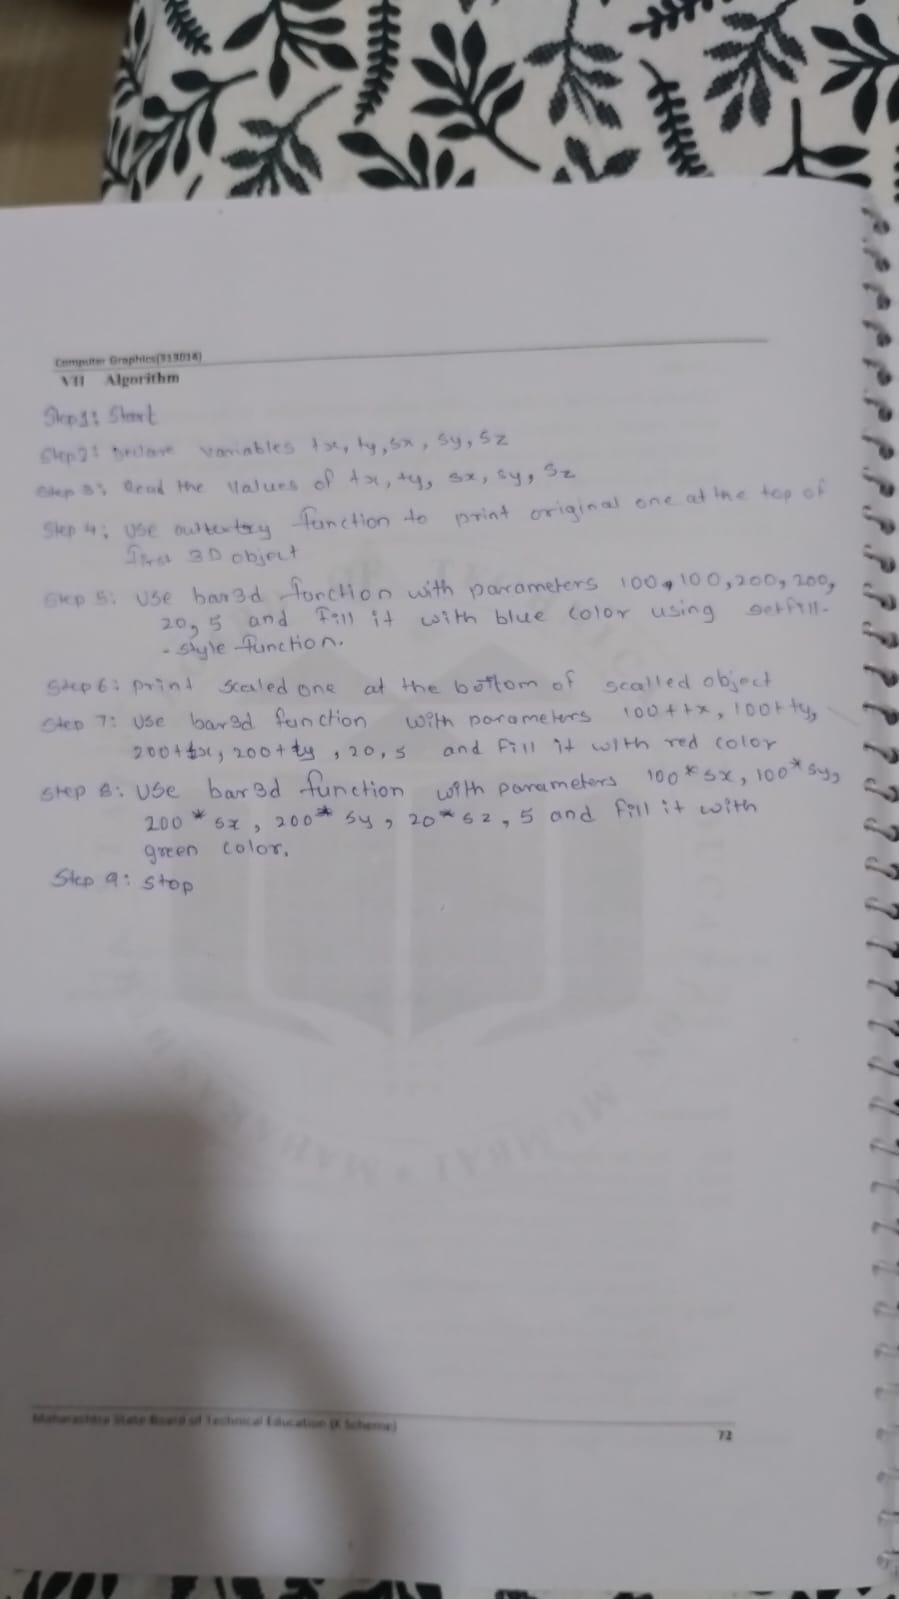 Computer Graphics(313016)
VII Algorithm
Step 1: Start
Step 2: Declare variables tx, ty, sx, sy, sz
Step 3: Read the values of tx, ty, sx, sy, sz
Step 4: Use outtextxy function to print original one at the top of
first 3D object
Step 5: Use bar3d function with parameters 100, 100, 200, 200,
20, 5 and fill it with blue color using setfill-
- style function.
Step 6: print scaled one at the bottom of scalled object
Step 7: Use bar3d function with parameters 100+tx, 100+ty,
200+tx, 200+ty, 20, 5 and fill it with red color
Step 8: Use bar3d function with parameters 100*sx, 100*sy,
200*sx, 200*sy, 20*sz, 5 and fill it with
green color.
Step 9: Stop
Maharashtra State Board of Technical Education (K Scheme)
72